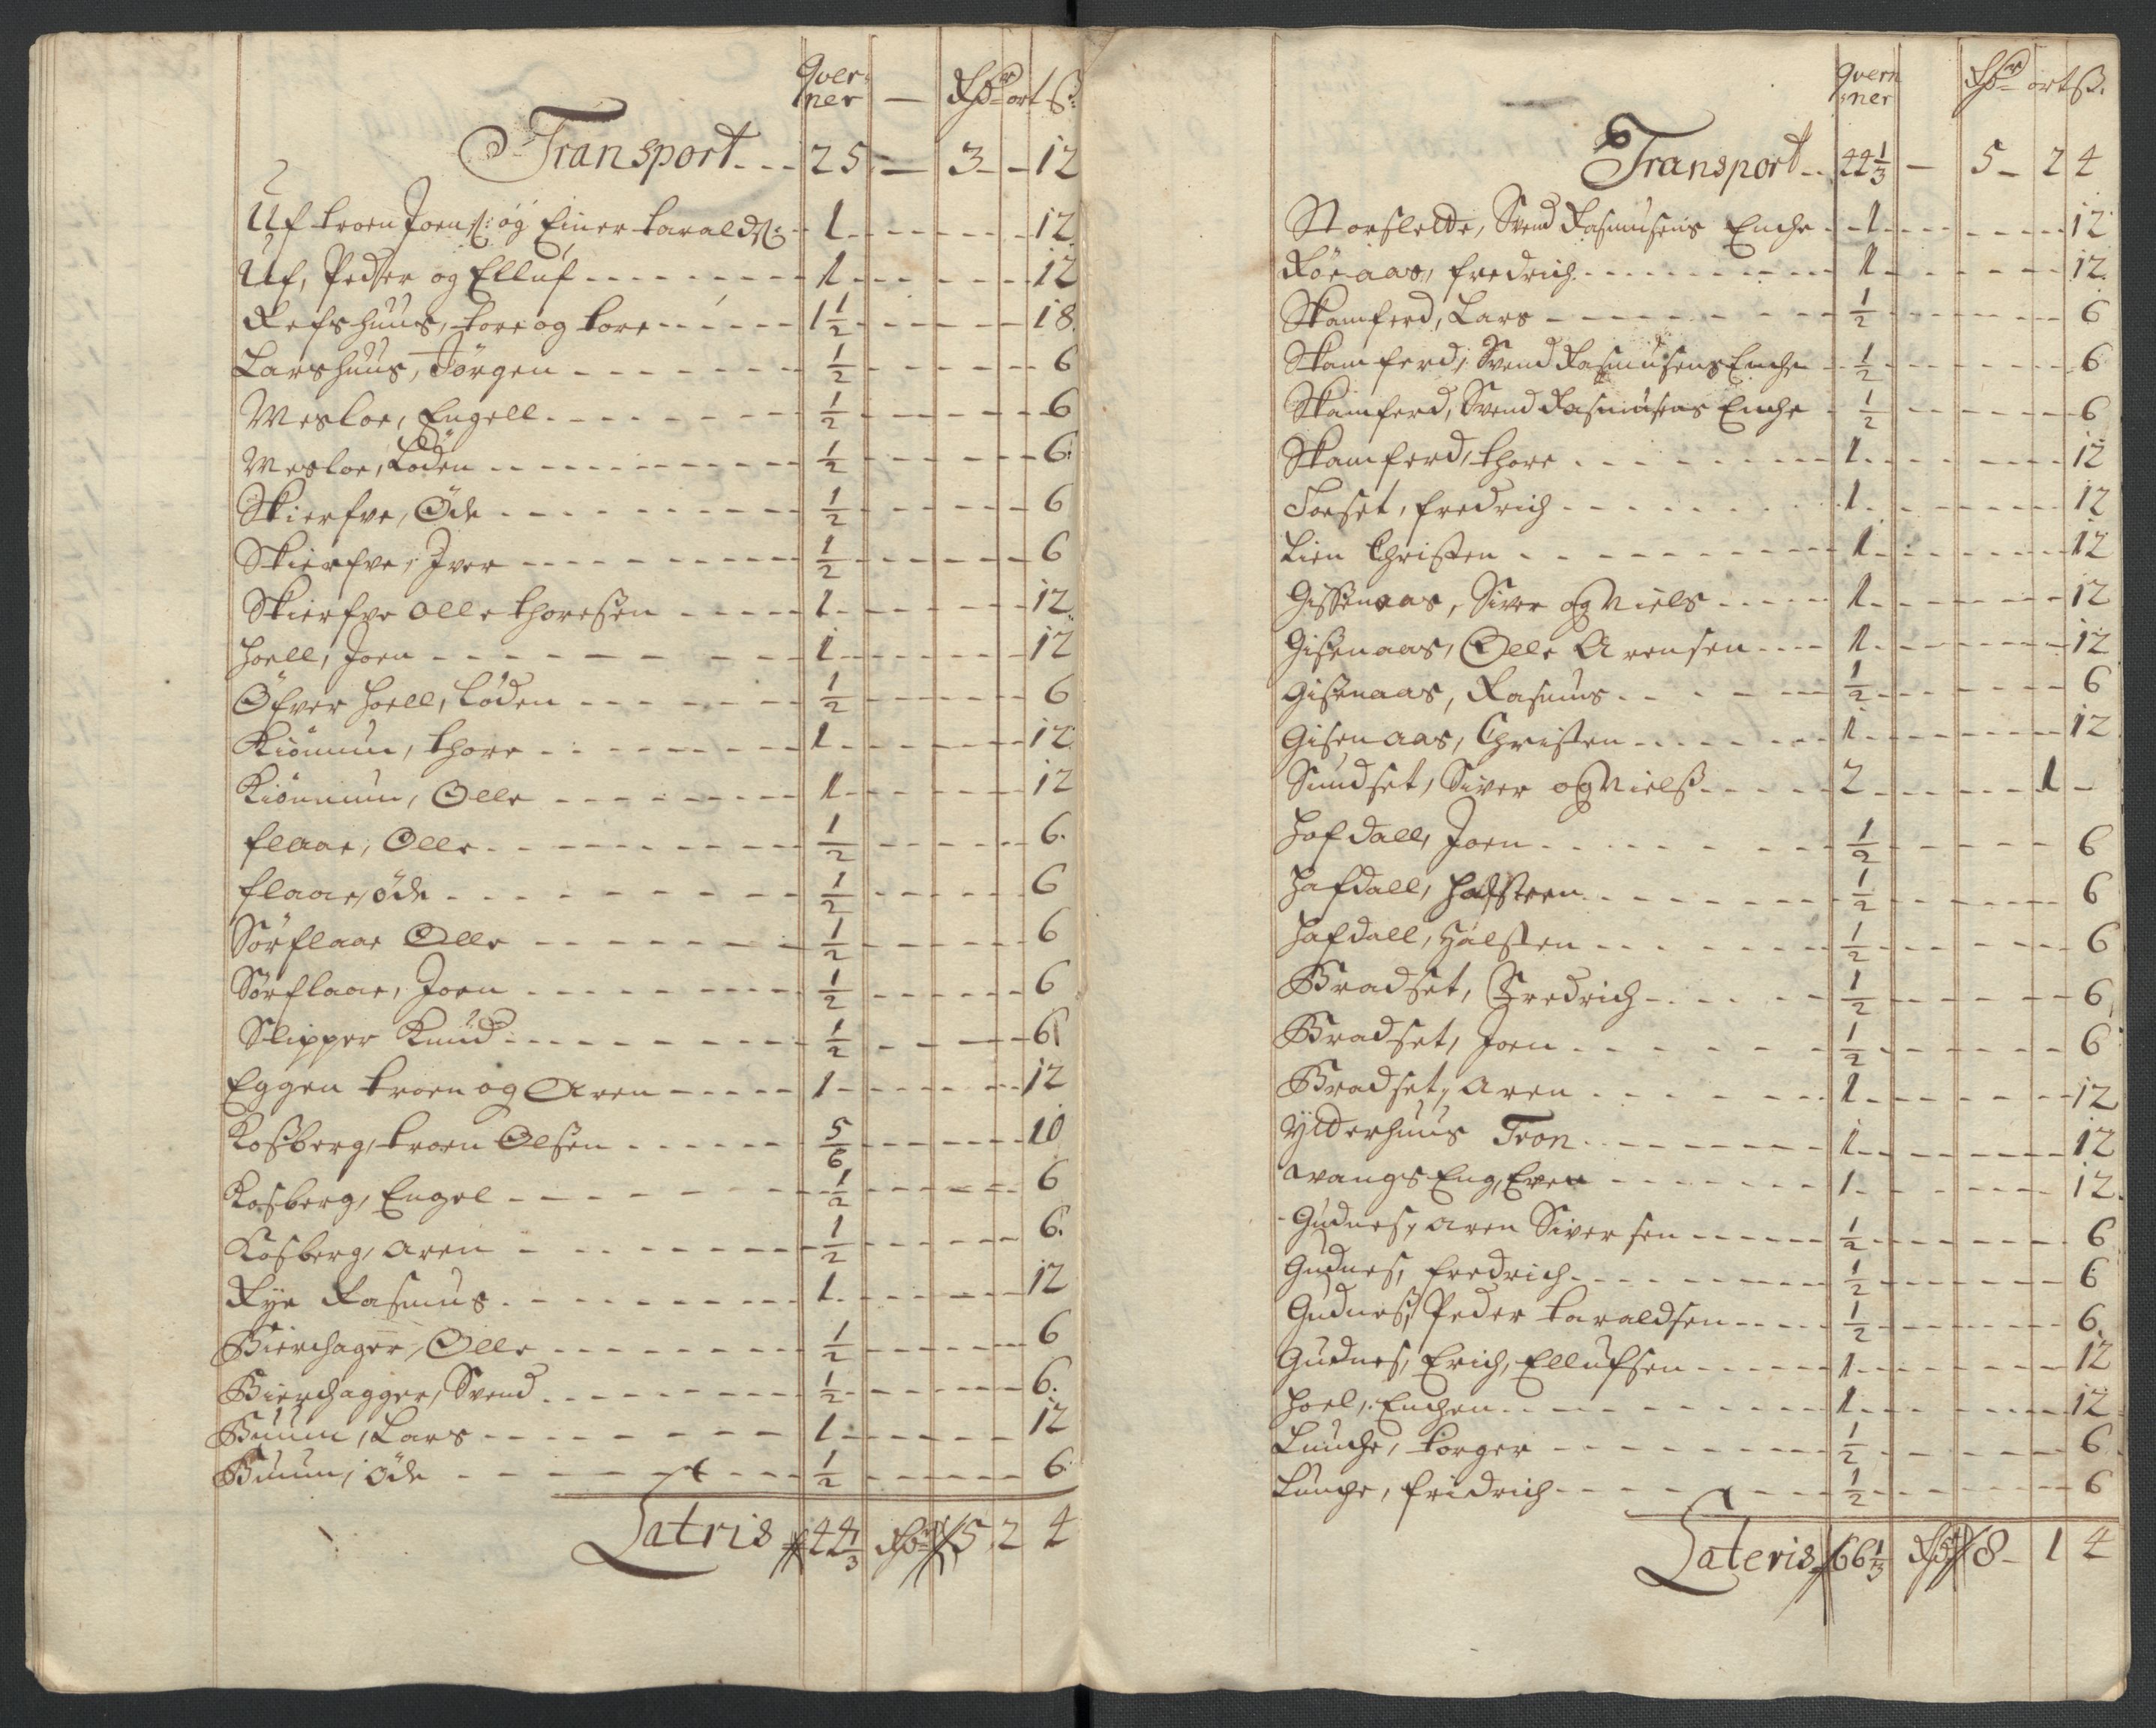 Qver-
ner — Rdr ort ß
Transport 25 — 3 — 12
Uf troen Joens: og Einer taralds: 1 12
Uf, Peder og Elluf 1 12
Refshuus, tore og tore 1 1/2 18
Larshuus, Jörgen 1/2 6
Mesloe, Engell 1/2 6
Mesloe, Loden 1/2 6
Skierfve, Öde 1/2 6
Skierfve, Iver 1/2 6
Skierfve olle thoresen 1 12
Hoell, Joen 1 12
Öfver Hoell, Loden 1/2 6
Kiönnum, thore 1 12
Kiönnum, Olle 1 12
flaae, Olle 1/2 6
flaae, öde 1/2 6
Sörflaae Olle 1/2 6
Sörflaae, Joen 1/2 6
Slipper Knud 1/2 6
Eggen troen og Aren 1 12
Kosberg, troen Olsen 5/6 10
Kosberg, Engel 1/2 6
Kosberg, Aren 1/2 6
Rye Rasmus 1 12
Bierchager, Olle 1/2 6
Bierchagger, Svend 1/2 6
Buum, Lars 1 12
Buum, öde 1/2 6
Latris 44 1/3 Rdr 5 2 4
Qvern
ner Rdr ort ß
Transport 44 1/3 — 5 — 2 4
Storslette, Svend Rasmusens Enche 1 12
Röeaas, fredrich 1 12
Stamferd, Lars 1/2 6
Stamferd, Svend Rasmusens Enche 1/2 6
Stamferd, Svend Rasmusens Enche 1/2 6
Stamferd, thore 1 12
Torset, fredrich 1 12
Lien Christen 1 12
Gissenaas, Siver og Niels 1 12
Gisenaas, Olle Arensen 1 12
Gisenaas, Rasmus 1/2 6
Gisenaas, Christen 1 12
Sundset, Siver og Nielß 2 1 —
Hafdall, Joen 1/2 6
Hafdall, Halsteen 1/2 6
Hafdall, Halsten 1/2 6
Bradset, Fredrich 1/2 6
Bradset, Joen 1/2 6
Bradset, Aren 1 12
Ytterhuus Tron 1 12
wangs Eng, Even 1 12
Gudnes, Aren Siversen 1/2 6
Gudnes, fredrich 1/2 6
Gudnes, Peder taraldsen 1/2 6
Gudnes, Erich, Ellufsen 1 12
Hoel, Enchen 1 12
Lunche, torger 1/2 6
Lunche, fridrich 1/2 6
Lateris 66 1/3 Rdr 8 — 1 4